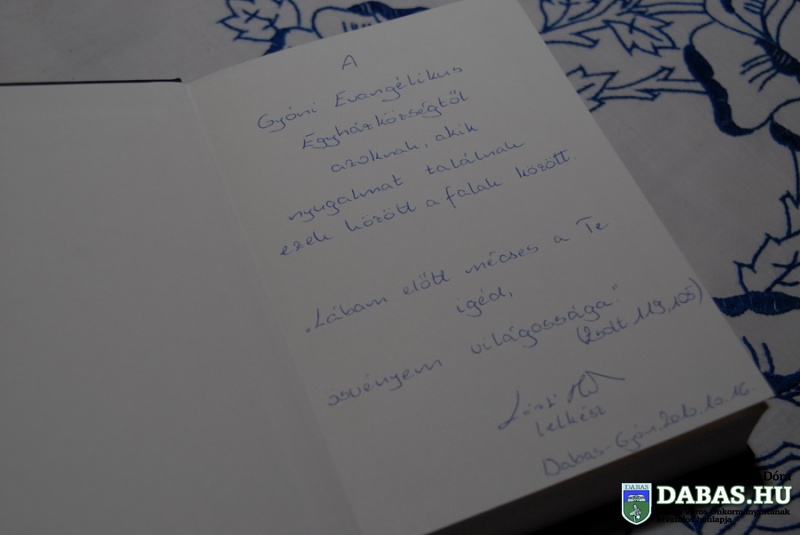 A
Gyóni Evangélikus
Egyházközségtől
azoknak, akik
nyugalmat találnak
ezek között a falak között.
„Lábam előtt mécses a Te
igéd,
ösvényem világossága."
(Zsolt 119,105)
lelkész
Dabas-Gyón, 2010.10.16.
Dóra
DABAS
DABAS.HU
Város Önkormányzatának
hivatalos honlapja